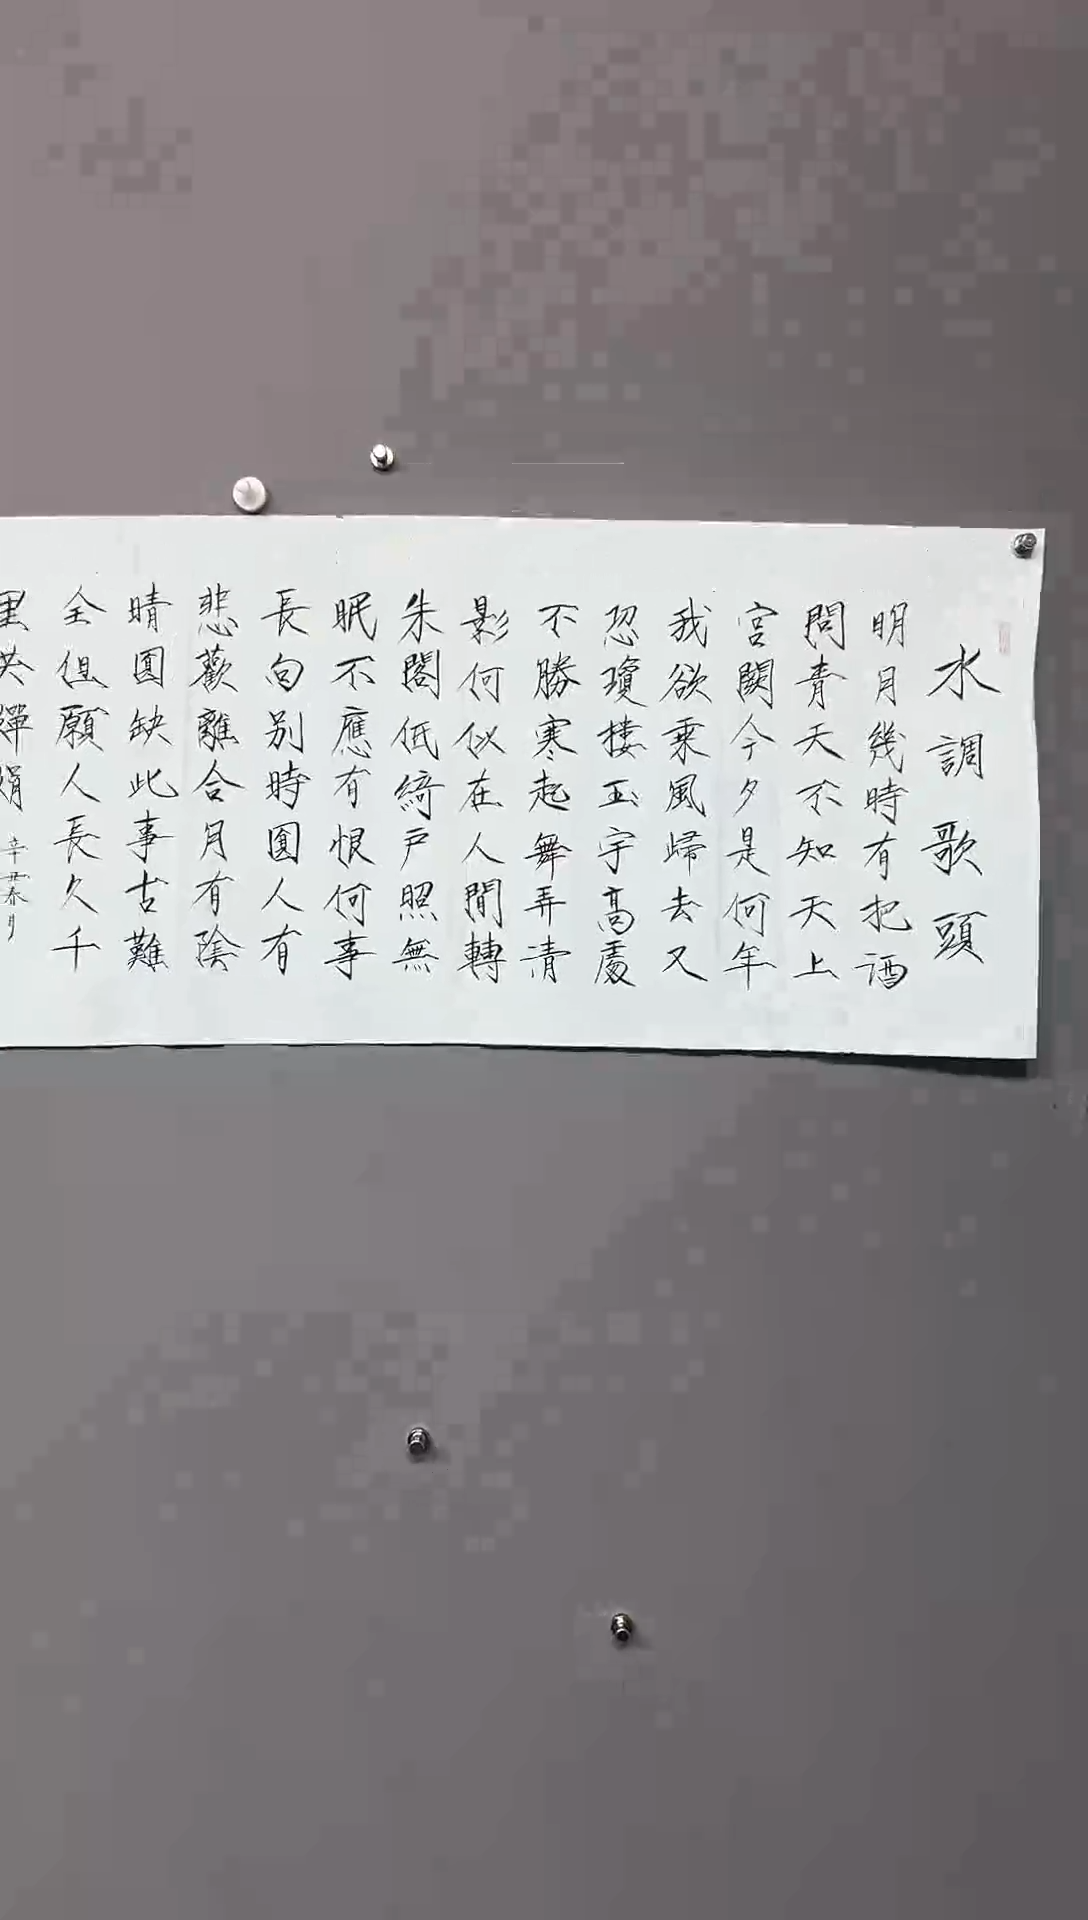 水調歌頭
明月幾時有把酒
問青天不知天上
宮闕今夕是何年
我欲乘風歸去又
恐瓊樓玉宇高處
不勝寒起舞弄清
影何似在人間轉
朱閣低綺戶照無
眠不應有恨何事
長向別時圓人有
悲歡離合月有陰
晴圓缺此事古難
全但願人長久千
里共嬋娟
辛丑春月